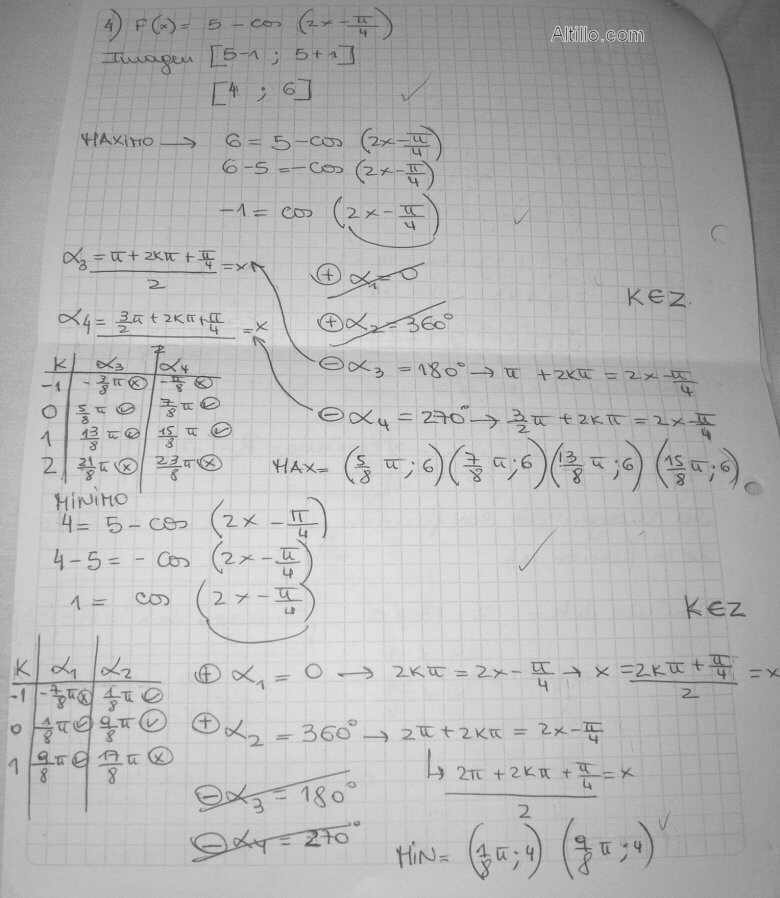 4) F(x) = 5 - cos (2x - π/4)
Altillo.com
Imagen [5-1 ; 5+1]
[4 ; 6] ✓
MAXIMO → 6 = 5 - cos (2x - π/4)
6-5 = - cos (2x - π/4)
-1 = cos (2x - π/4) ✓
α3 = (π + 2Kπ + π/4)/2 = x
⊕ α1 = 0
K ∈ Z.
α4 = (3/2 π + 2Kπ + π/4)/2 = x
⊕ α2 = 360°
⊖ α3 = 180° → π + 2Kπ = 2x - π/4
⊖ α4 = 270° → 3/2 π + 2Kπ = 2x - π/4
K | α3 | α4
-1 | -3/8 π ⓧ | -π/8 ⓧ
0 | 5/8 π ✓ | 7/8 π ✓
1 | 13/8 π ✓ | 15/8 π ✓
2 | 21/8 π ⓧ | 23/8 π ⓧ
MAX = (5/8 π ; 6) (7/8 π ; 6) (13/8 π ; 6) (15/8 π ; 6)
MINIMO
4 = 5 - cos (2x - π/4)
4-5 = - cos (2x - π/4) ✓
1 = cos (2x - π/4)
K ∈ Z
K | α1 | α2
-1 | -7/8 π ⓧ | 1/8 π ✓
0 | 1/8 π ✓ | 9/8 π ✓
1 | 9/8 π ✓ | 17/8 π ⓧ
⊕ α1 = 0 → 2Kπ = 2x - π/4 → x = (2Kπ + π/4)/2 = x
⊕ α2 = 360° → 2π + 2Kπ = 2x - π/4
↳ (2π + 2Kπ + π/4)/2 = x
⊖ α3 = 180°
⊖ α4 = 270°
MIN = (1/8 π ; 4) (9/8 π ; 4) ✓